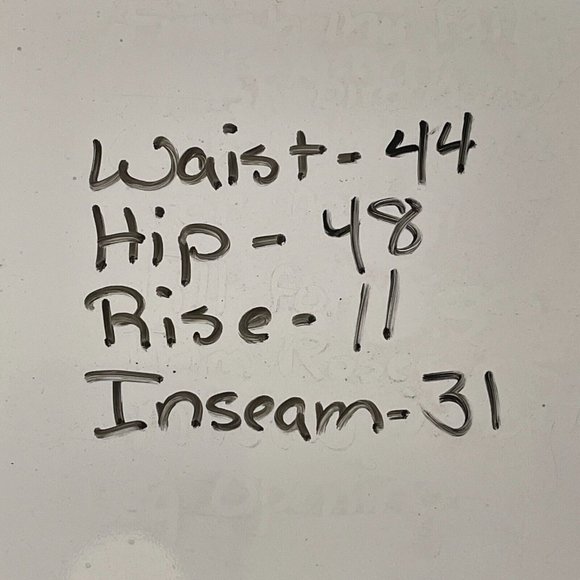 Waist- 44
Hip - 48
Rise- 11
Inseam- 31